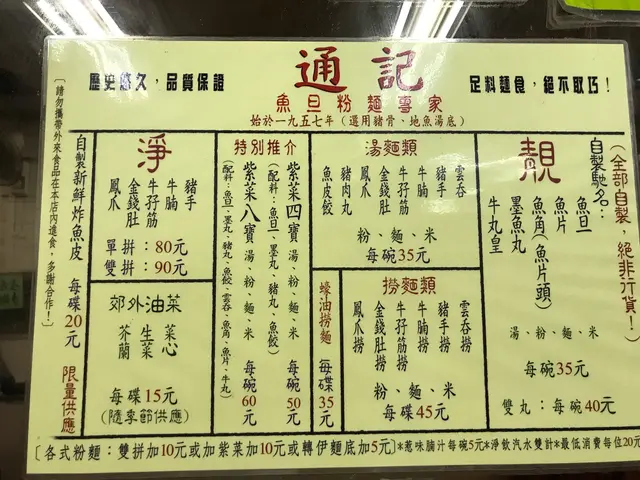 通記
歷史悠久，品質保證
足料麵食，絕不取巧！
魚旦粉麵專家
始於一九五七年（選用豬骨、地魚湯底）
（全部自製，絕非行貨！）
靚
自製馳名：
魚旦
魚片
魚角（魚片頭）
墨魚丸
牛丸皇
湯、粉、麵、米
每碗35元
雙丸：每碗40元
湯麵類
雲吞
豬手
牛腩
牛孖筋
金錢肚
鳳爪
豬肉丸
魚皮餃
粉、麵、米
每碗35元
撈麵類
雲吞撈
豬手撈
牛腩撈
牛孖筋撈
金錢肚撈
鳳爪撈
粉、麵、米
每碟45元
蠔油撈麵
每碟35元
特別推介
紫菜四寶湯、粉、麵、米 每碗50元
（配料：魚旦、墨丸、豬丸、魚餃）
紫菜八寶湯、粉、麵、米 每碗60元
（配料：魚旦、墨丸、豬丸、魚餃、雲吞、魚角、魚片、牛丸）
淨
豬手
牛腩
牛孖筋
金錢肚
鳳爪
單拼：80元
雙拼：90元
郊外油菜
菜心
生菜
芥蘭
每碟15元
（隨季節供應）
自製新鮮炸魚皮 每碟20元 限量供應
〔請勿攜帶外來食品在本店內進食，多謝合作！〕
〔各式粉麵：雙拼加10元或加紫菜加10元或轉伊麵底加5元〕*葱味腩汁每碗5元*淨飲汽水雙計*最低消費每位20元